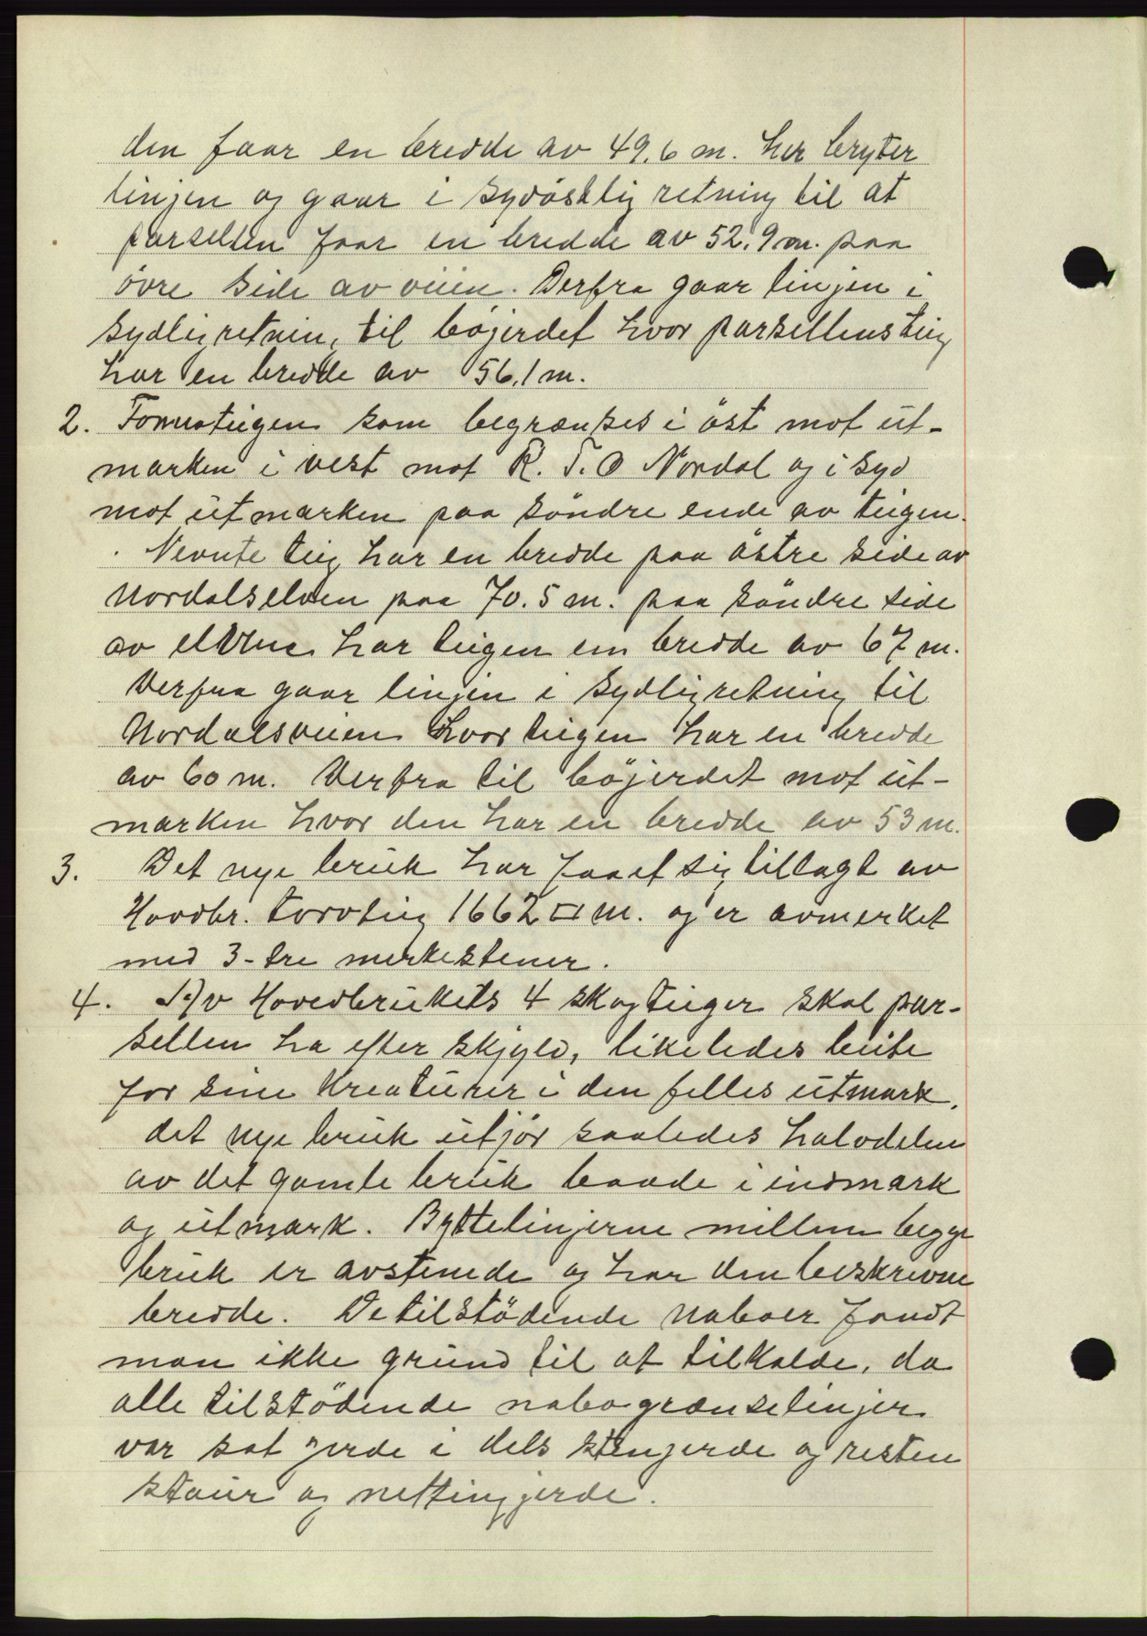 den faar en bredde av 49,6 m. her bryter
linjen og gaar i sydöstlig retning til at
parsellen faar en bredde av 52,9 m. paa
övre side av veien. Derfra gaar linjen i
sydlig retning til böjerdet hvor parsellens teig
har en bredde av 56,1 m.
2. som begrænses i öst mot ut-
marken i vest mot R. T. O Nordal og i syd
mot utmarken paa söndre ende av teigen.
Nevnte teig har en bredde paa östre side av
Nordalselven paa 70.5 m. paa söndre side
av elven har teigen en bredde av 67 m.
Derfra gaar linjen i sydlig retning til
Nordalsveien hvor teigen har en bredde
av 60 m. Derfra til böjerdet mot ut-
marken hvor den har en bredde av 53 m.
3. Det nye bruk har faaet sig tillagt av
Hovedbr. torvteig 1662 □ m. og er avmerket
med 3-tre merkestener.
4. Av Hovedbrukets 4 skogteiger skal par-
sellen ha efter skjyld, likeledes beite
for sine Kreaturer i den felles utmark,
det nye bruk utjör saaledes halvdelen
av det gamle bruk baade i indmark
og utmark. Byttelinjerne mellem begge
bruk er avstenede og har den beskrevne
bredde. De tilstödende naboer fandt
man ikke grund til at tilkalde, da
alle tilstödende nabogrænselinjer
var sat gjerde i dels stengjerde og resten
staur og nettinggjerde.